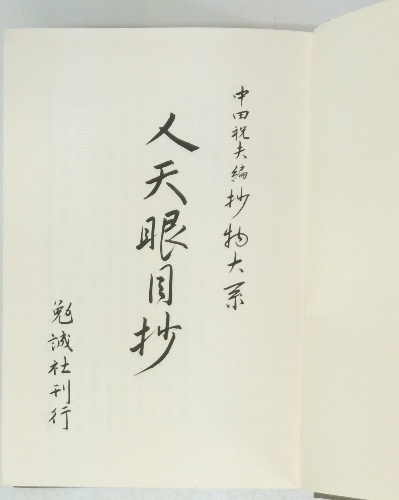 中田祝夫編抄物大系
人天眼目抄
勉誠社刊行